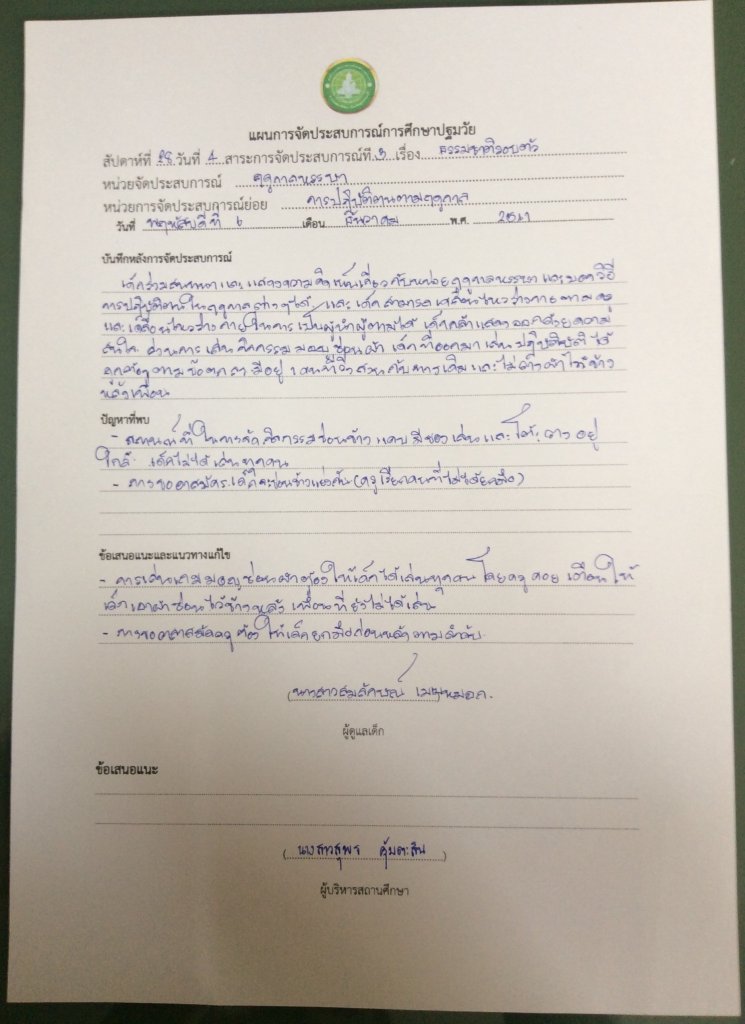 แผนการจัดประสบการณ์การศึกษาปฐมวัย
สัปดาห์ที่ 28 วันที่ 4 สาระการจัดประสบการณ์ที่ 3 เรื่อง ธรรมชาติรอบตัว
หน่วยจัดประสบการณ์ ฤดูกาลหรรษา
หน่วยการจัดประสบการณ์ย่อย การปฏิบัติตนตามฤดูกาล
วันที่ พฤหัสบดีที่ 6 เดือน ธันวาคม พ.ศ. 2561
บันทึกหลังการจัดประสบการณ์
เด็กร่วมสนทนาและแสดงความคิดเห็นเกี่ยวกับหน่วยฤดูกาลหรรษาและบอกวิธี
การปฏิบัติตนในฤดูกาลต่างๆได้ และเด็กสามารถเคลื่อนไหวร่างกายตามครู
และเคลื่อนไหวร่างกายในการเป็นผู้นำผู้ตามได้ เด็กกล้าแสดงออกด้วยความ
สนใจ ส่วนการเล่นกิจกรรมมอญซ่อนผ้า เด็กที่ออกมาเล่นปฏิบัติได้
ถูกต้องตามข้อตกลง มีอยู่ 1 คนที่วิ่งสวนกับทางเดิมและไม่วางผ้าไว้ข้าง
หลังเพื่อน
ปัญหาที่พบ
- สถานที่ในการจัดกิจกรรมค่อนข้างแคบมีของเล่นและโต๊ะวางอยู่
ใกล้ เด็กไม่ได้เล่นทุกคน
- การขออาสาสมัครเด็กจะค่อนข้างแย่งกัน (ครูเรียกคนที่ไม่ได้ยกมือ)
ข้อเสนอแนะและแนวทางแก้ไข
- การเล่นเกมมอญซ่อนผ้าต้องให้เด็กได้เล่นทุกคน โดยครูคอยเตือนให้
เด็กเอาผ้าซ่อนไว้ข้างหลังเพื่อนที่ยังไม่ได้เล่น
- การขออาสาสมัครครูต้องให้เด็กยกมือก่อนหลังตามลำดับ
(นางสาวสมลักษณ์ เมฆหมอก)
ผู้ดูแลเด็ก
ข้อเสนอแนะ
(นางสาวสุพร คุ้มตะสิน)
ผู้บริหารสถานศึกษา